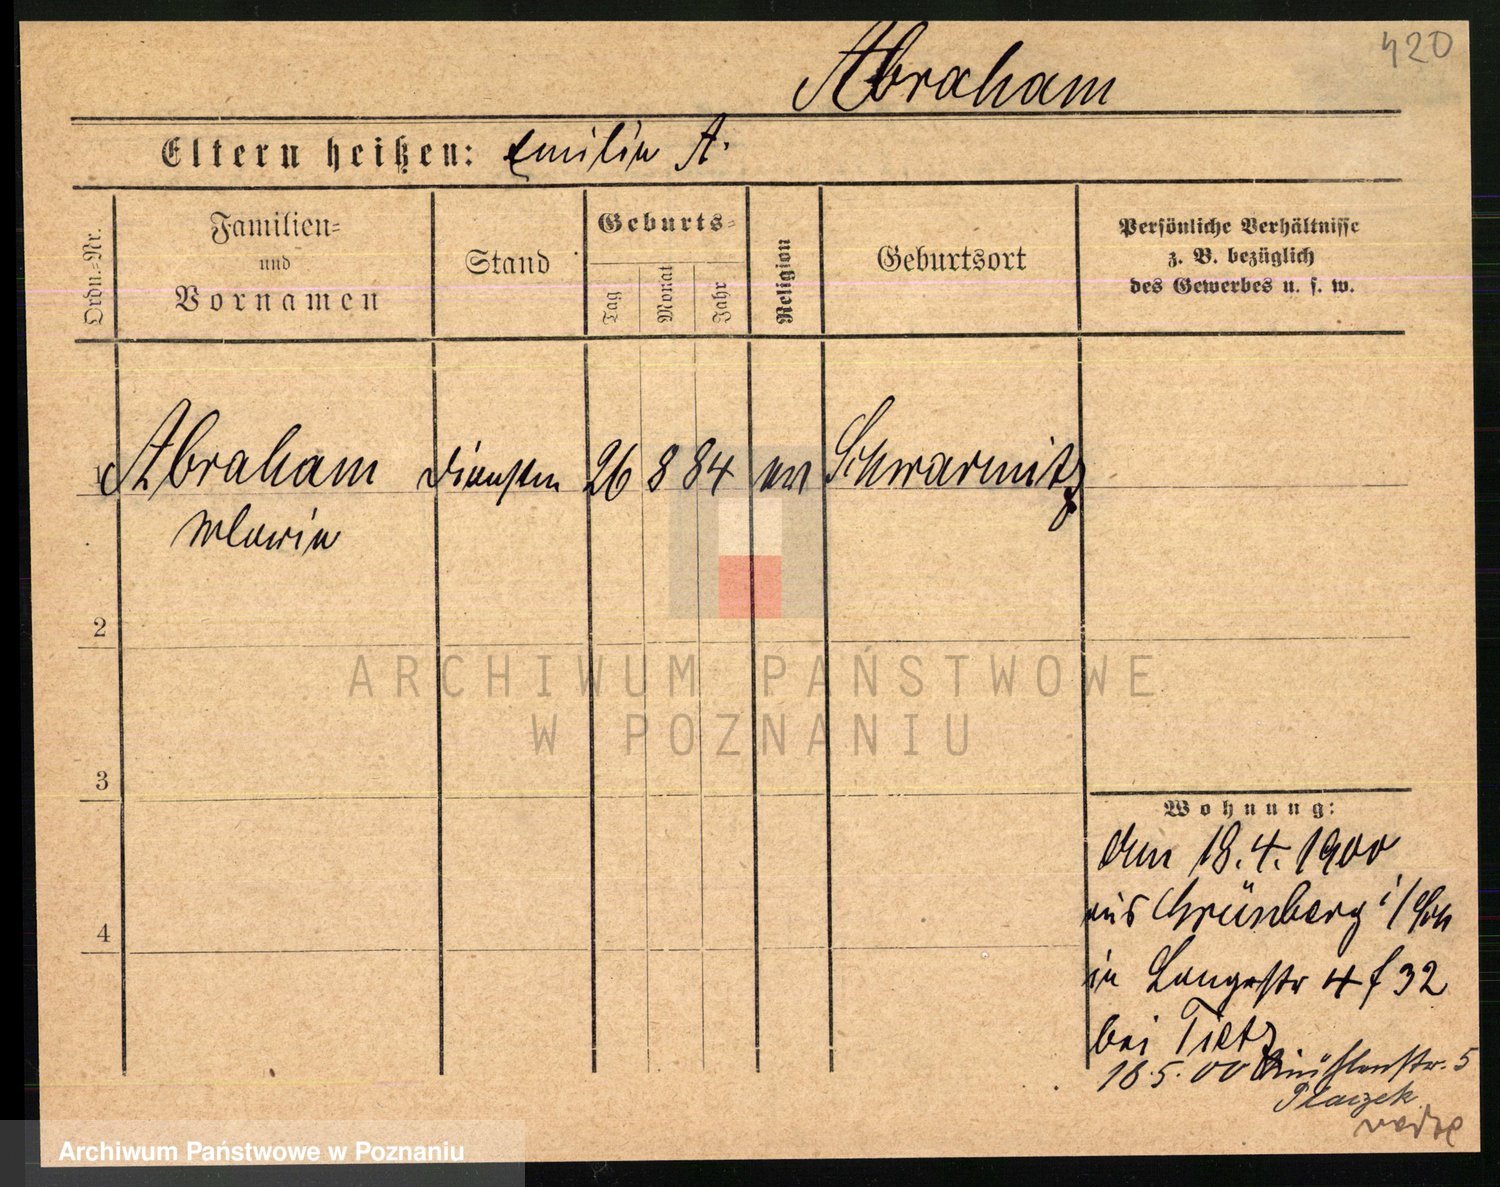 420
Abraham
Eltern heißen: Emilie A.
Ordn.-Nr.
Familien-
und
Vornamen
Stand
Geburts-
Tag
Monat
Jahr
Religion
Geburtsort
Persönliche Verhältnisse
z. B. bezüglich
des Gewerbes u. s. w.
1 Abraham Dienstm 26 8 84 ev Schwarmitz
Marie
2
ARCHIWUM PAŃSTWOWE
W POZNANIU
3
4
Wohnung:
den 18.4.1900
aus Grünberg i/Sch
in Langestr 4 f 32
bei Tietz
18.5.00 Mühlenstr. 5
Placzek
Archiwum Państwowe w Poznaniu